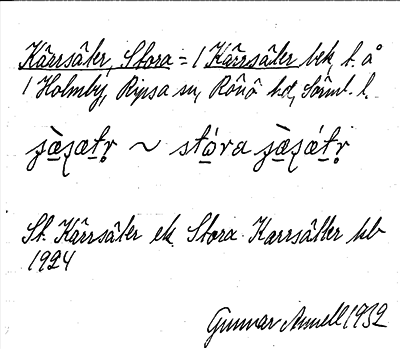 Kärrsäter, Stora = 1 Kärrsäter bek, t. å
1 Holmby, Ripsa sn, Rönö hd, Sörml. l.
stóra
St. Kärrsäter ek. Stora Karrsätter kb
1924
Gunnar Annell 1932